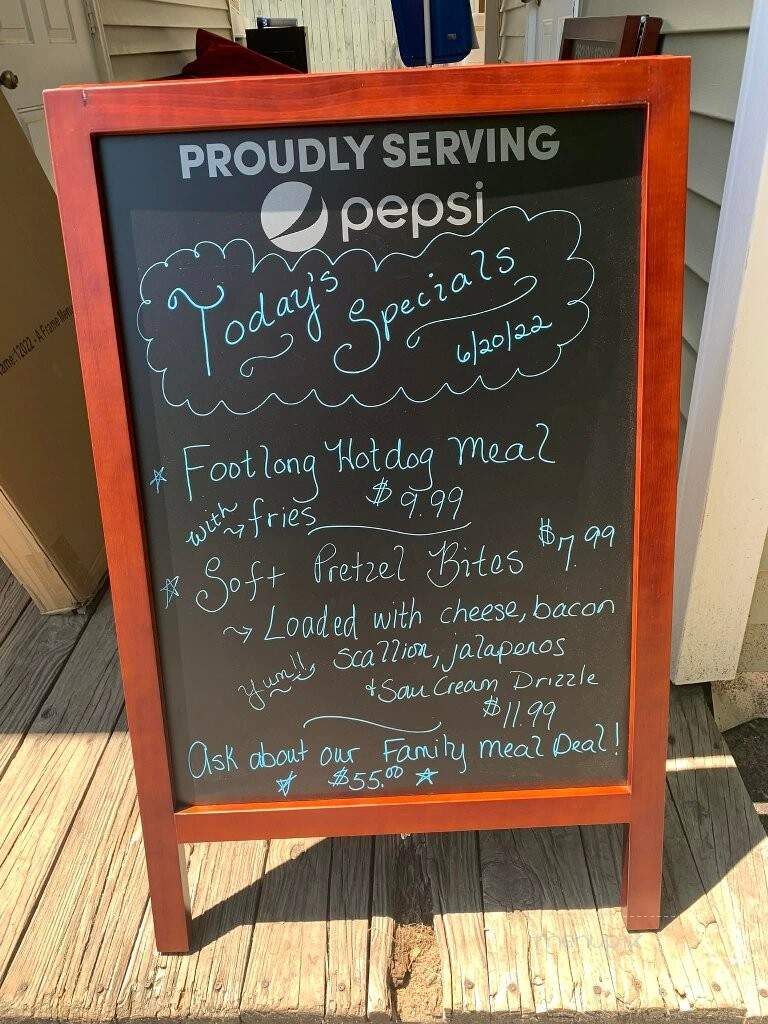 PROUDLY SERVING
pepsi
Today's Specials
6/20/22
Footlong Hotdog Meal
with fries $9.99
Soft Pretzel Bites $7.99
Loaded with cheese, bacon
Yum!! scallion, jalapenos
+ Sour Cream Drizzle
$11.99
Ask about our Family meal Deal!
$55.00
12022 - A-Frame
menupix